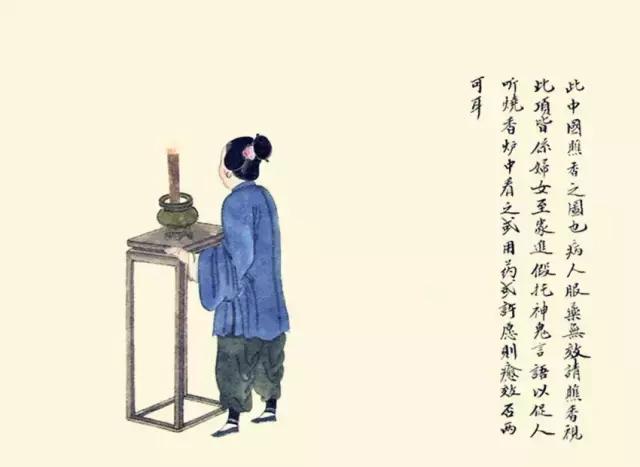 此中國瞧香之圖也病人服藥無效請瞧香視
此項皆係婦女至家進假托神鬼言語以促人
听燒香炉中看之或用药或許愿則癒效否两
可耳